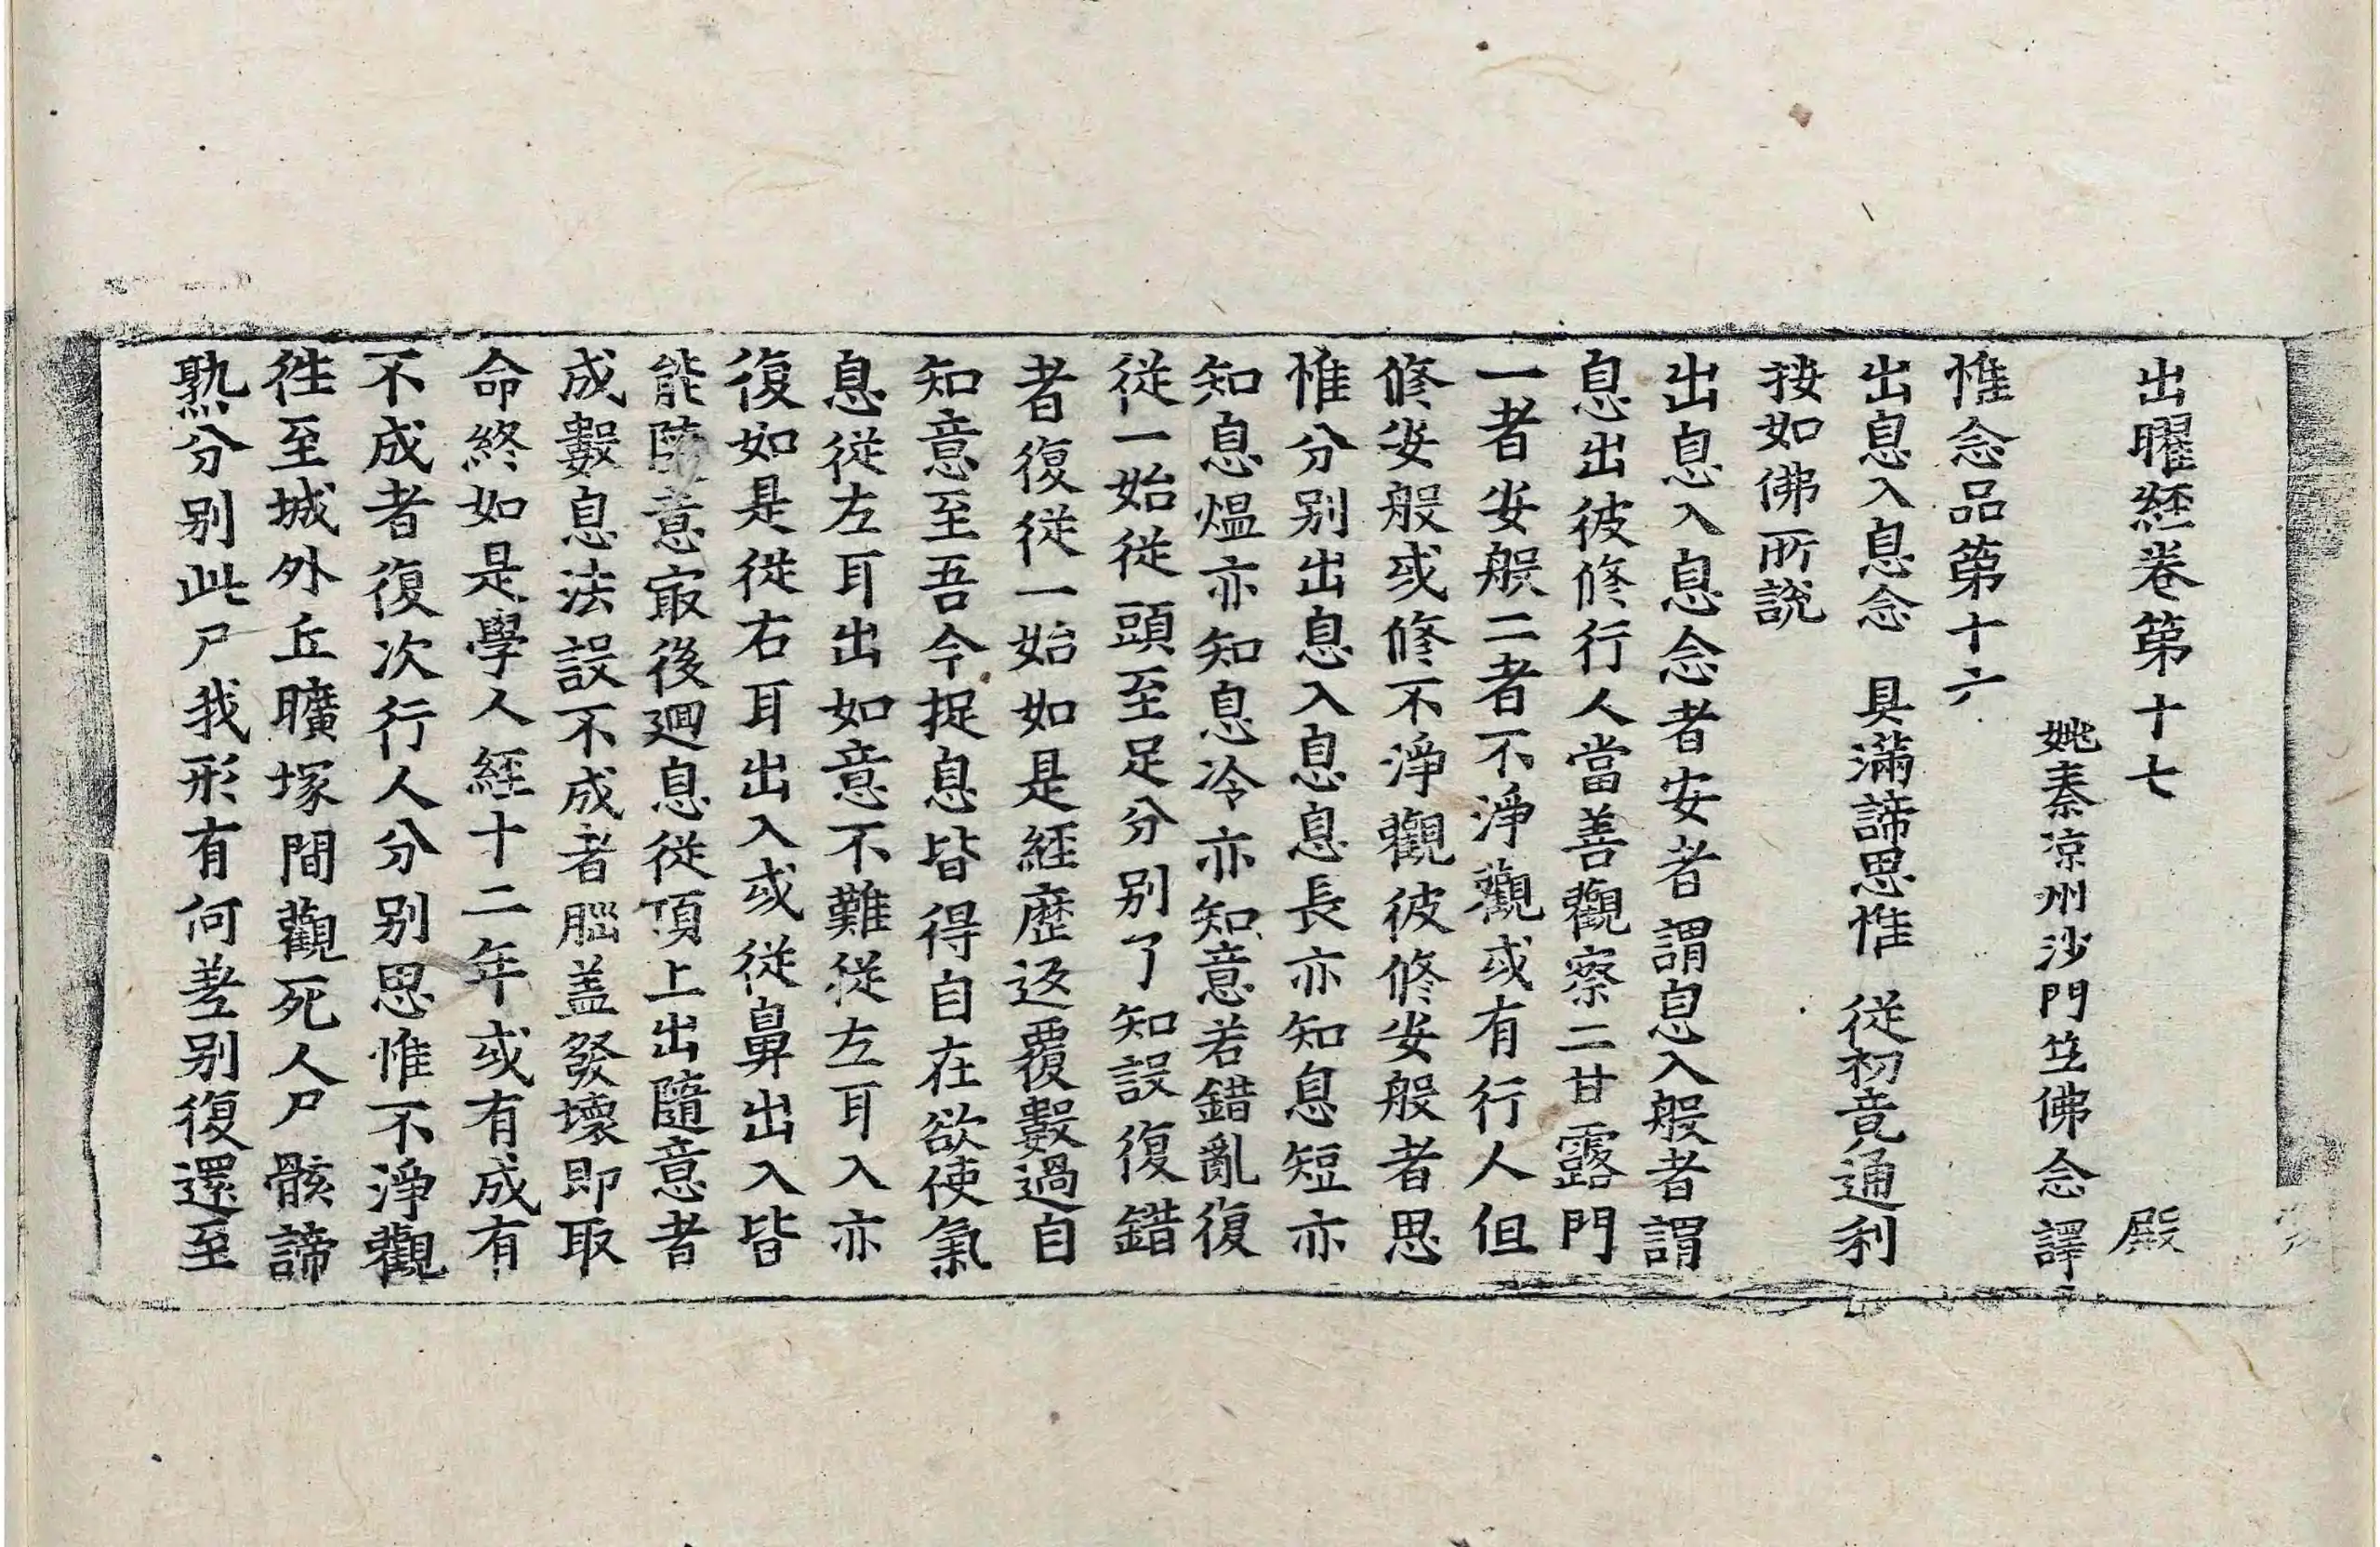 出曜經卷第十七 殿
姚秦凉州沙門竺佛念譯
惟念品第十六
出息入息念 具滿諦思惟 從初竟通利
按如佛所說
出息入息念者安者謂息入般者謂
息出彼修行人當善觀察二甘露門
一者安般二者不淨觀或有行人但
修安般或修不淨觀彼修安般者思
惟分別出息入息息長亦知息短亦
知息熅亦知息冷亦知意若錯亂復
從一始從頭至足分別了知設復錯
者復從一始如是經歷返覆數過自
知意至吾今捉息皆得自在欲使氣
息從左耳出如意不難從左耳入亦
復如是從右耳出入或從鼻出入皆
能隨意㝡後迴息從頂上出隨意者
成數息法設不成者腦盖發壞即取
命終如是學人經十二年或有成有
不成者復次行人分別思惟不淨觀
往至城外丘曠塚間觀死人尸骸諦
熟分別此尸我形有何差別復還至